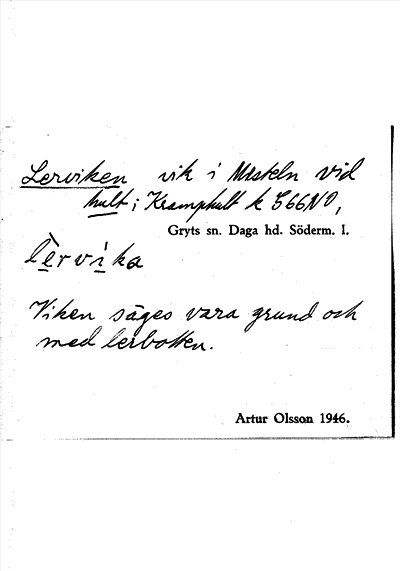 Lerviken vik i Misteln vid
hult i Kramphult k S66NO,
Gryts sn. Daga hd. Söderm. l.
lèrvika
Viken säges vara grund och
med lerbotten.
Artur Olsson 1946.